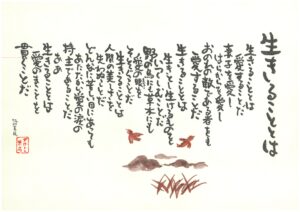 生きることとは
生きることとは
愛することだ
妻子を愛し
はらからを愛し
おのれの敵である者をも
愛することだ
生きることとは
生きとし生けるものを
いつくしむことだ
野の鳥にも草木にも
愛の眼を
そそぐことだ
生きることとは
人間の美しさを
失わぬことだ
どんなに苦しい目にあっても
あたたかい愛の涙の
持主であることだ
ああ
生きることとは
愛のまことを
貫くことだ